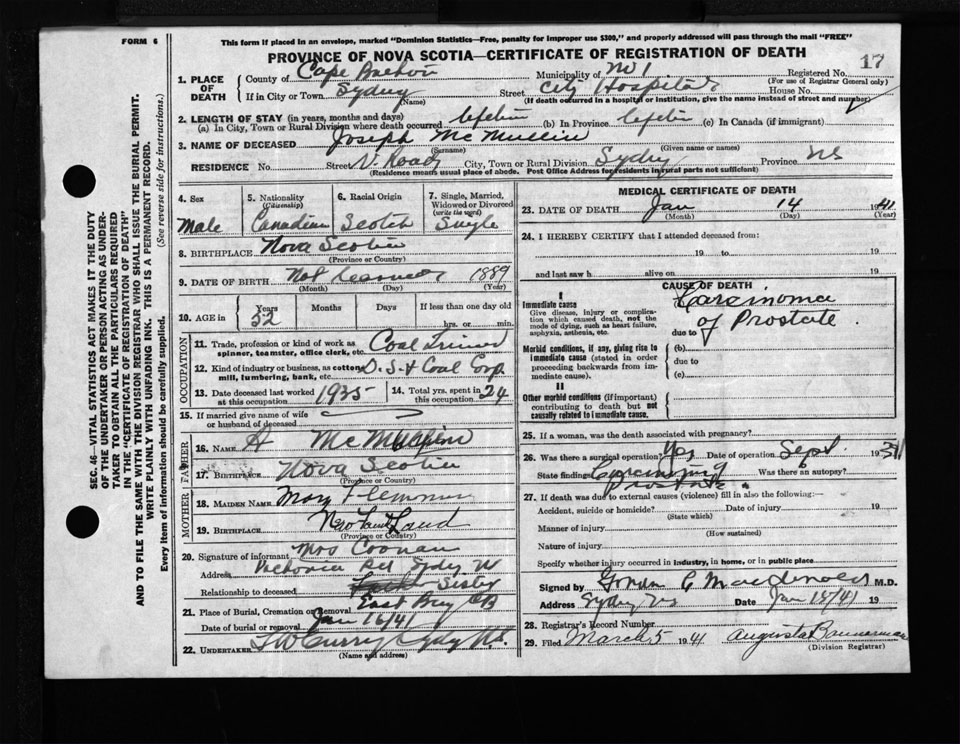 FORM 6
This form if placed in an envelope, marked "Dominion Statistics—Free, penalty for improper use $300," and properly addressed will pass through the mail "FREE"
PROVINCE OF NOVA SCOTIA—CERTIFICATE OF REGISTRATION OF DEATH
17
SEC. 46—VITAL STATISTICS ACT MAKES IT THE DUTY
OF THE UNDERTAKER OR PERSON ACTING AS UNDER-
TAKER TO OBTAIN ALL THE PARTICULARS REQUIRED
IN THE "CERTIFICATE OF REGISTRATION OF DEATH"
AND TO FILE THE SAME WITH THE DIVISION REGISTRAR WHO SHALL ISSUE THE BURIAL PERMIT.
WRITE PLAINLY WITH UNFADING INK. THIS IS A PERMANENT RECORD.
Every item of information should be carefully supplied. (See reverse side for instructions.)
1. PLACE OF DEATH
County of Cape Breton Municipality of No 1 Registered No.
(For use of Registrar General only)
If in City or Town Sydney Street City Hospital House No.
(Name) (If death occurred in a hospital or institution, give the name instead of street and number)
2. LENGTH OF STAY (in years, months and days)
(a) In City, Town or Rural Division where death occurred lifetime (b) In Province lifetime (c) In Canada (if immigrant)
3. NAME OF DECEASED Joseph McMullin
(Surname) (Given name or names)
RESIDENCE No. Street V. Road City, Town or Rural Division Sydney Province NS
(Residence means usual place of abode. Post Office Address for residents in rural parts not sufficient)
4. Sex Male
5. Nationality (Citizenship) Canadian
6. Racial Origin Scotch
7. Single, Married, Widowed or Divorced (write the word) Single
8. BIRTHPLACE Nova Scotia
(Province or Country)
9. DATE OF BIRTH Not 1889
(Month) (Day) (Year)
10. AGE in Years 52 Months Days If less than one day old hrs. or min.
OCCUPATION
11. Trade, profession or kind of work as spinner, teamster, office clerk, etc. Coal
12. Kind of industry or business, as cotton mill, lumbering, bank, etc. D.S.& Coal Corp
13. Date deceased last worked at this occupation 1935
14. Total yrs. spent in this occupation 24
15. If married give name of wife or husband of deceased
FATHER
16. NAME A McMullin
17. BIRTHPLACE Nova Scotia
MOTHER
18. MAIDEN NAME Mary Flemming
19. BIRTHPLACE NewFoundLand
(Province or Country)
20. Signature of informant Mrs Coonan
Address Victoria Rd Sydney
Relationship to deceased Sister
21. Place of Burial, Cremation or Removal East Bay CB
Date of burial or removal Jan 16/41
22. UNDERTAKER TW Curry Sydney NS.
(Name and address)
MEDICAL CERTIFICATE OF DEATH
23. DATE OF DEATH Jan 14 1941
(Month) (Day) (Year)
24. I HEREBY CERTIFY that I attended deceased from:
19 to 19
and last saw h alive on 19
CAUSE OF DEATH
I
Immediate cause
Give disease, injury or complication which caused death, not the mode of dying, such as heart failure, asphyxia, asthenia, etc.
Carcinoma
of Prostate
due to
Morbid conditions, if any, giving rise to immediate cause (stated in order proceeding backwards from immediate cause).
(b)
due to
(c)
II
Other morbid conditions (if important) contributing to death but not causally related to immediate cause.
25. If a woman, was the death associated with pregnancy?
26. Was there a surgical operation? Yes Date of operation Sept. 19
State findings Carcinoma Prostate Was there an autopsy?
27. If death was due to external causes (violence) fill in also the following:—
Accident, suicide or homicide? Date of injury 19
(State which)
Manner of injury
(How sustained)
Nature of injury
Specify whether injury occurred in industry, in home, or in public place
Signed by Gordon C MacDonald M.D.
Address Sydney NS Date Jan 15/41 19
28. Registrar's Record Number
29. Filed March 5 1941 Augusta Bannerman
(Division Registrar)